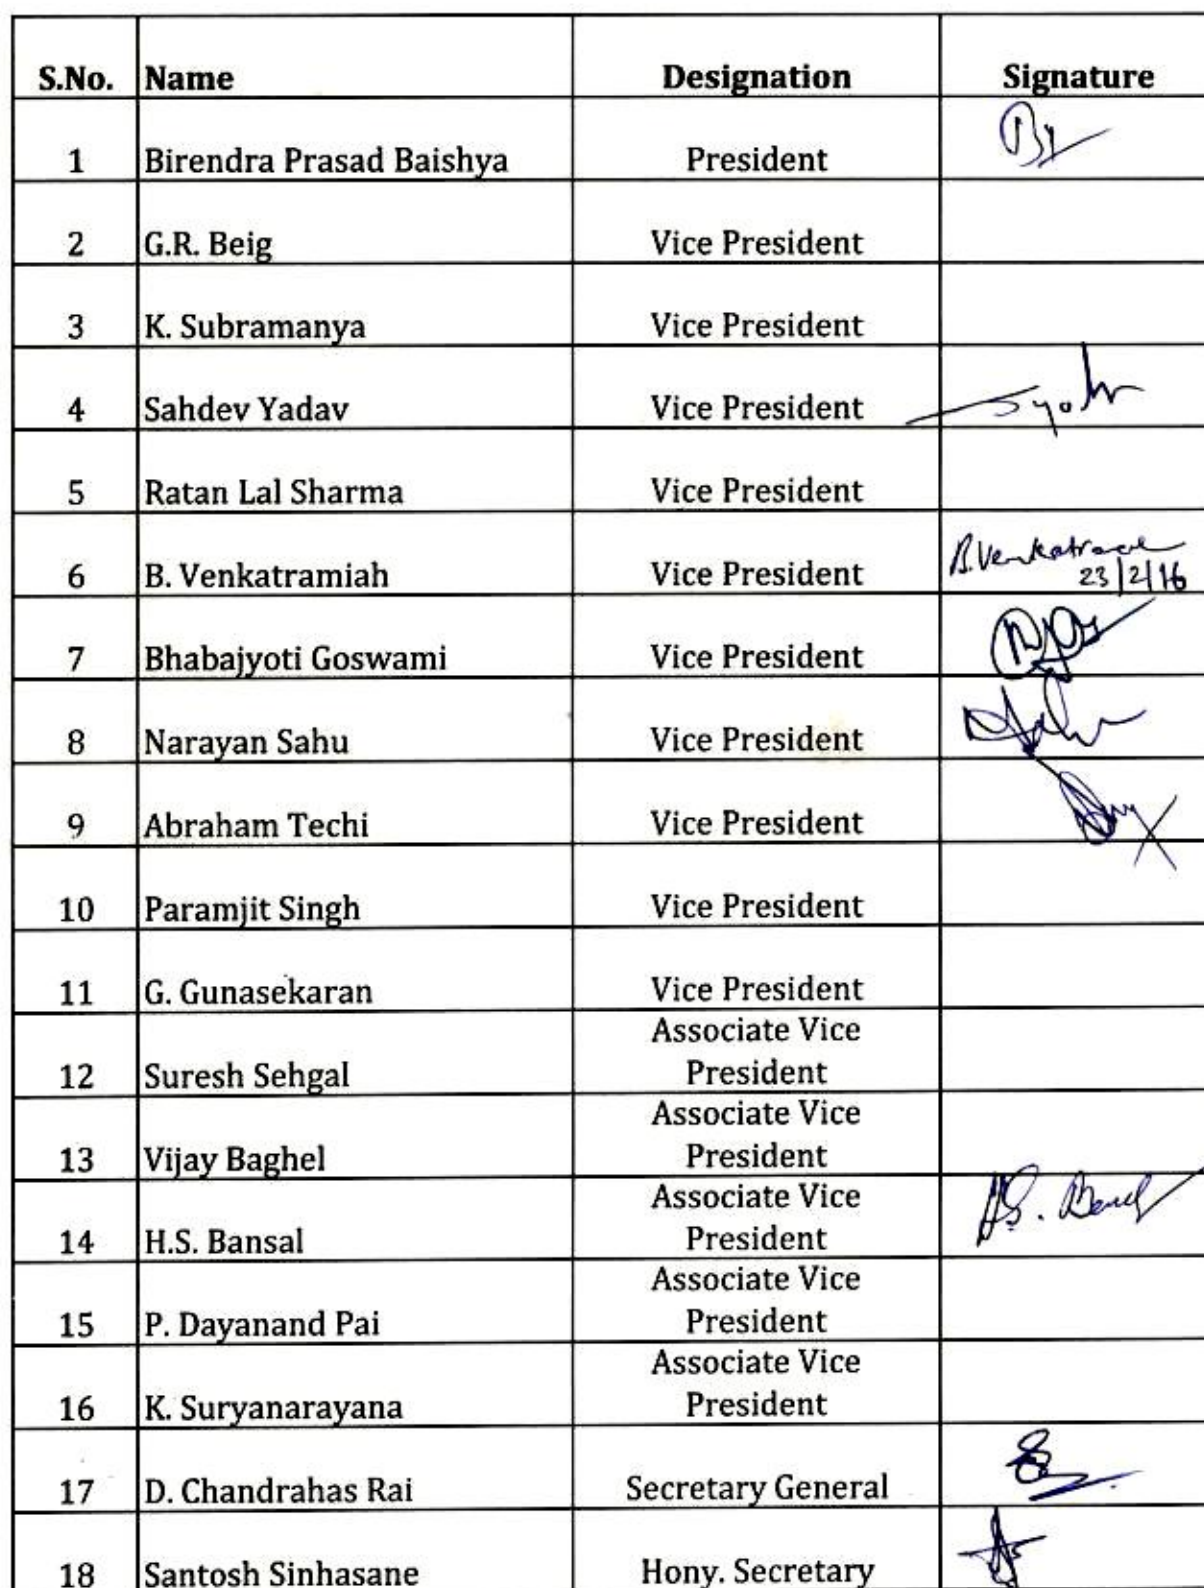 S.No. Name Designation Signature
1 Birendra Prasad Baishya President
2 G.R. Beig Vice President
3 K. Subramanya Vice President
4 Sahdev Yadav Vice President
5 Ratan Lal Sharma Vice President
6 B. Venkatramiah Vice President
23/2/16
7 Bhabajyoti Goswami Vice President
8 Narayan Sahu Vice President
9 Abraham Techi Vice President
10 Paramjit Singh Vice President
11 G. Gunasekaran Vice President
Associate Vice
12 Suresh Sehgal President
Associate Vice
13 Vijay Baghel President
Associate Vice
14 H.S. Bansal President
Associate Vice
15 P. Dayanand Pai President
Associate Vice
16 K. Suryanarayana President
17 D. Chandrahas Rai Secretary General
18 Santosh Sinhasane Hony. Secretary